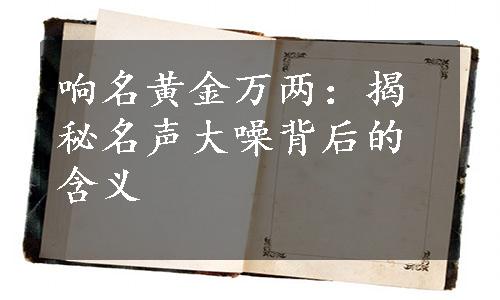 响名黄金万两：揭
秘名声大噪背后的
含义